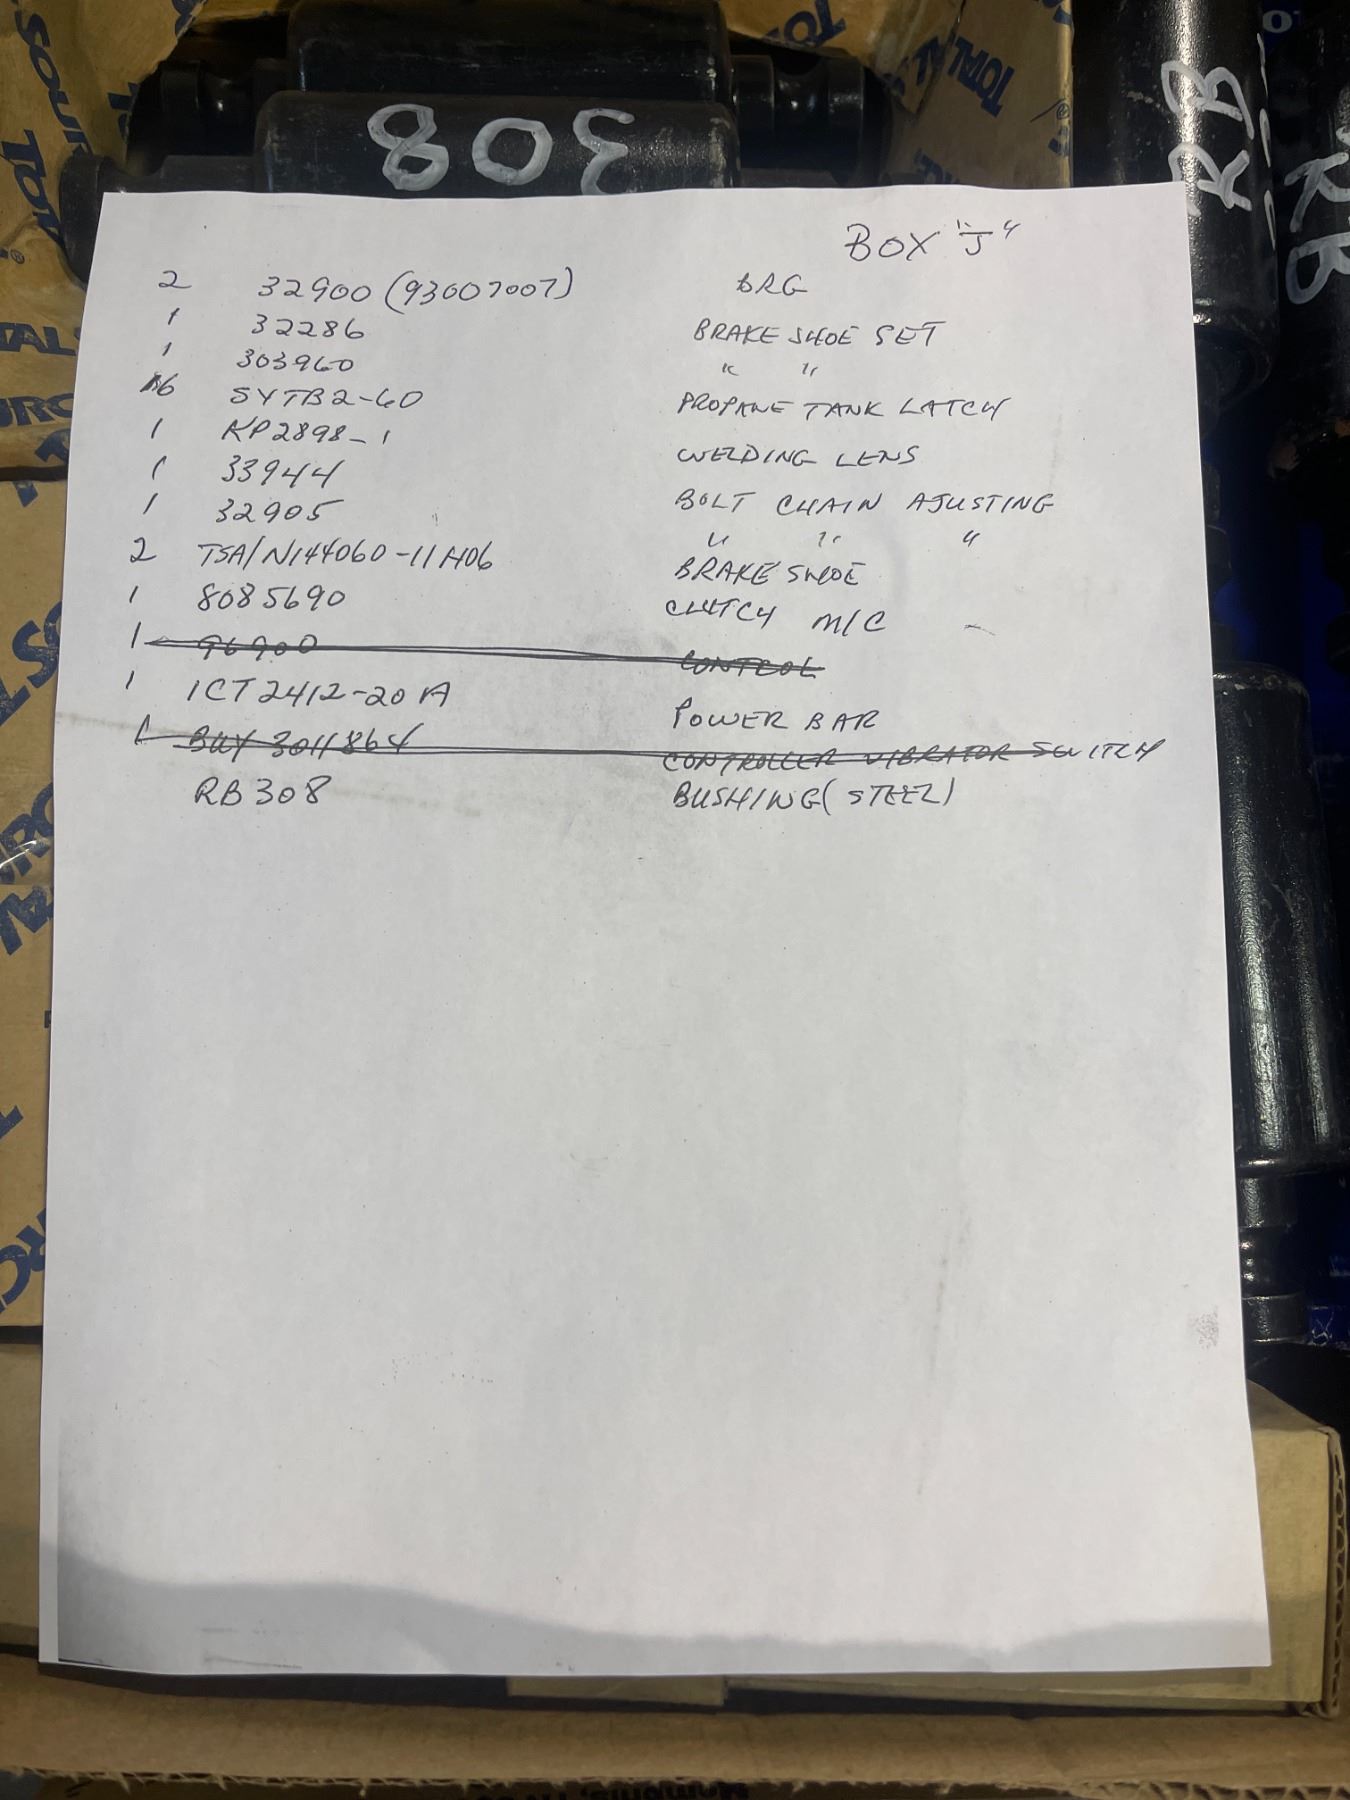 308
RB
RB
BOX "J"
2 32900 (93007007) BRG
1 32286 BRAKE SHOE SET
1 303960 " "
16 SYTB2-60 PROPANE TANK LATCH
1 KP2898-1 WELDING LENS
1 33944 BOLT CHAIN AJUSTING
1 32905 " " "
2 TSA/N144060-11H06 BRAKE SHOE
1 8085690 CLUTCH M/C
1 96900 CONTROL
1 ICT2412-20A POWER BAR
1 BUY 3011864 CONTROLLER VIBRATOR SWITCH
RB308 BUSHING (STEEL)